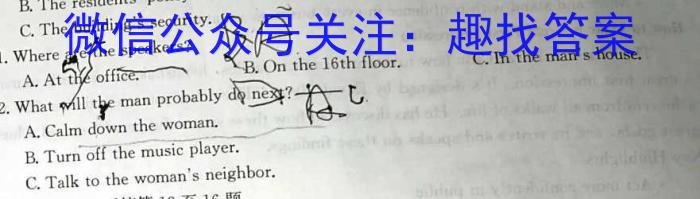 B. The residents'
C. The building's security.
微信公众号关注：趣找答案
1. Where are the speakers?
A. At the office.
B. On the 16th floor.
C. In the man's house.
2. What will the man probably do next?
A. Calm down the woman.
B. Turn off the music player.
C. Talk to the woman's neighbor.